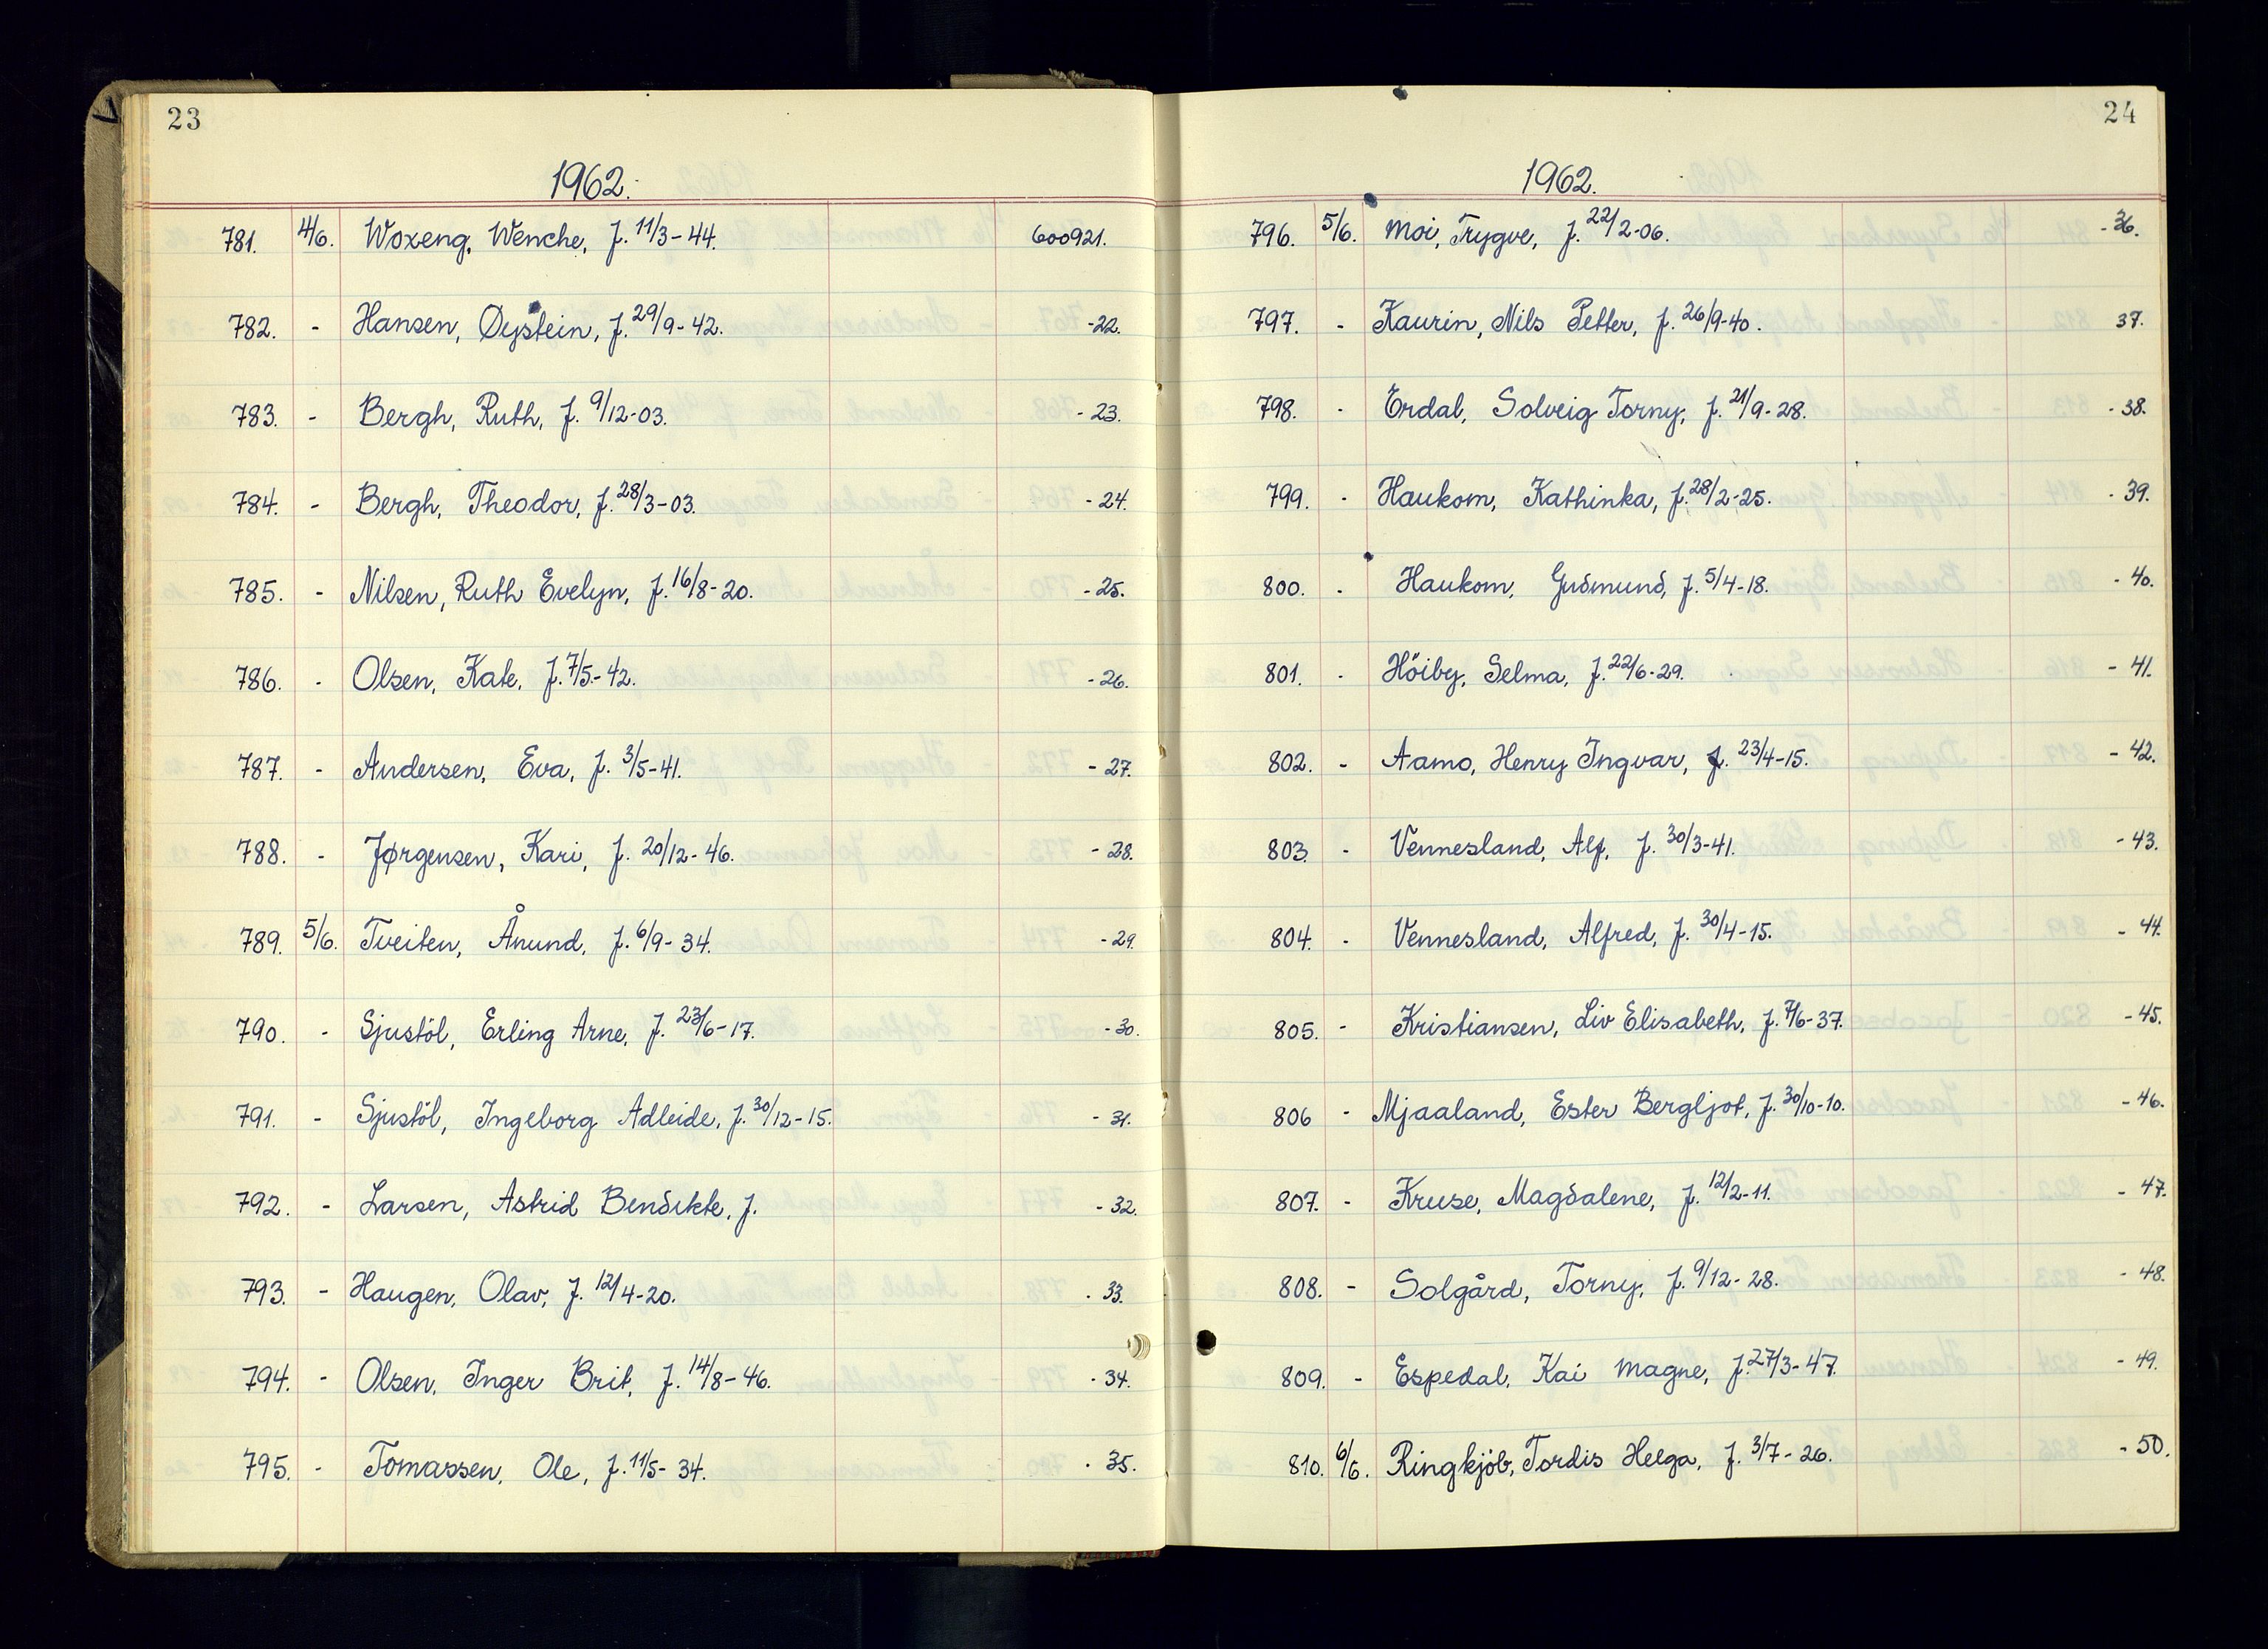 23
1962.
781. 4/6. Woxeng, Wenche, f. 11/3-44. 600921.
782. - Hansen, Øystein, f. 29/9-42. -22.
783. - Bergh, Ruth, f. 9/12-03. -23.
784. - Bergh, Theodor, f. 28/3-03. -24.
785. - Nilsen, Ruth Evelyn, f. 16/8-20. -25.
786. - Olsen, Kate, f. 7/5-42. -26.
787. - Andersen, Eva, f. 3/5-41. -27.
788. - Jørgensen, Kari, f. 20/12-46. -28.
789. 5/6. Tveiten, Ånund, f. 6/9-34. -29.
790. - Sjustöl, Erling Arne, f. 23/6-17. -30.
791. - Sjustöl, Ingeborg Adleide, f. 30/12-15. -31.
792. - Larsen, Astrid Bendikte, f. -32.
793. - Haugen, Olav, f. 12/4-20. -33.
794. - Olsen, Inger Brit, f. 14/8-46. -34.
795. - Tomassen, Ole, f. 11/5-34. -35.
24
1962.
796. 5/6. Moi, Trygve, f. 22/2-06. -36.
797. - Kaurin, Nils Petter, f. 26/9-40. 37.
798. - Erdal, Solveig Torny, f. 21/9-28. -38.
799. - Haukom, Kathinka, f. 28/2-25. -39.
800. - Haukom, Gudmund, f. 5/4-18. -40.
801. - Höiby, Selma, f. 22/6-29. -41.
802. - Aamo, Henry Ingvar, f. 23/4-15. -42.
803. - Vennesland, Alf, f. 30/3-41. -43.
804. - Vennesland, Alfred, f. 30/4-15. -44.
805. - Kristiansen, Liv Elisabeth, f. 7/6-37. -45.
806 - Mjaaland, Ester Bergljot, f. 30/10-10. -46.
807. - Kruse, Magdalene, f. 12/2-11. -47.
808. - Solgård, Torny, f. 9/12-28. -48.
809. - Espedal, Kai Magne, f. 27/3-47. -49.
810. 6/6. Ringkjöb, Tordis Helga, f. 3/7-26. -50.